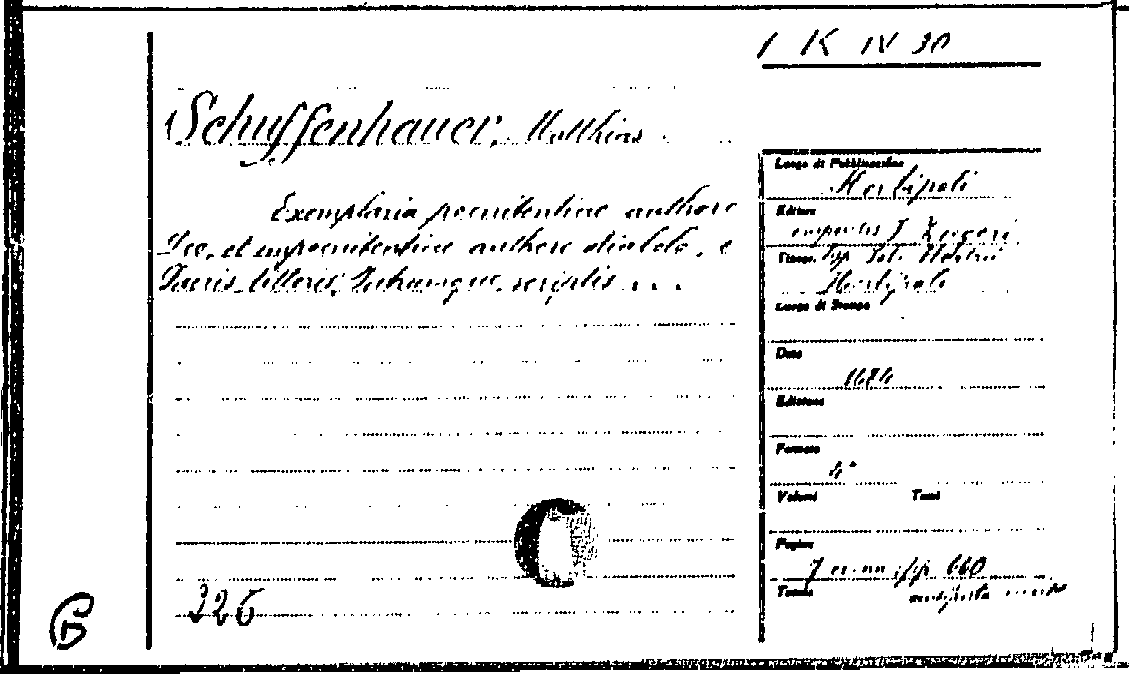 1 K IV 30
Schuffenhauer, Matthias
Exemplaria poenitentiae authore
Deo, et impoenitentiae authore diabolo, e
Sacris litteris, Patrumque scriptis ...
326
G
Luogo di Pubblicazione
Herbipoli
Editore
impensis J Zugeri
Typ.
Herbipoli
Luogo di Stampa
Data
Edizione
Formato
4°
Volumi Tomi
Pagine
7 pp 660
Tavole